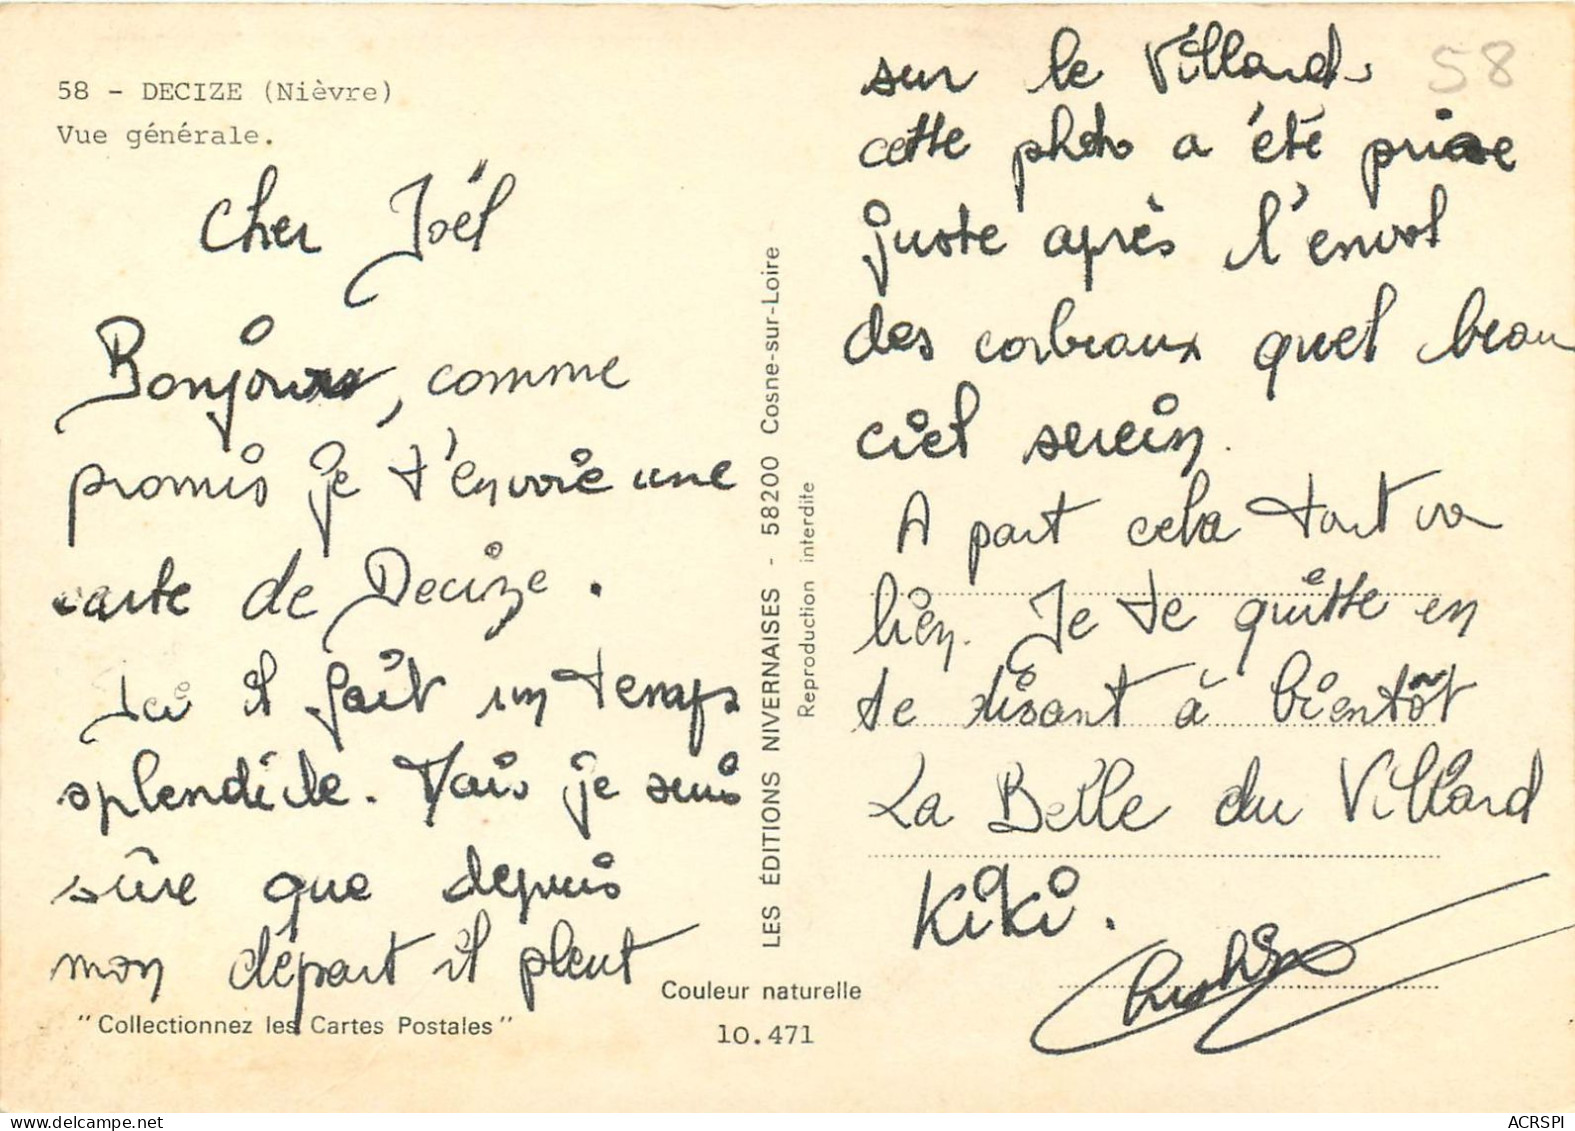 58 - DECIZE (Nièvre)
Vue générale.
Cher Joël
Bonjour, comme
promis je t'envoie une
carte de Decize.
Ici il fait un temps
splendide. Mais je suis
sûre que depuis
mon départ il pleut
"Collectionnez les Cartes Postales"
LES ÉDITIONS NIVERNAISES - 58200 Cosne-sur-Loire
Reproduction interdite
Couleur naturelle
10.471
58
sur le Villard.
cette photo a été prise
juste après l'envol
des corbeaux quel beau
ciel serein.
A part cela tout va
bien. Je te quitte en
te disant à bientôt
La Belle du Villard
KiKi.
ACRSPI